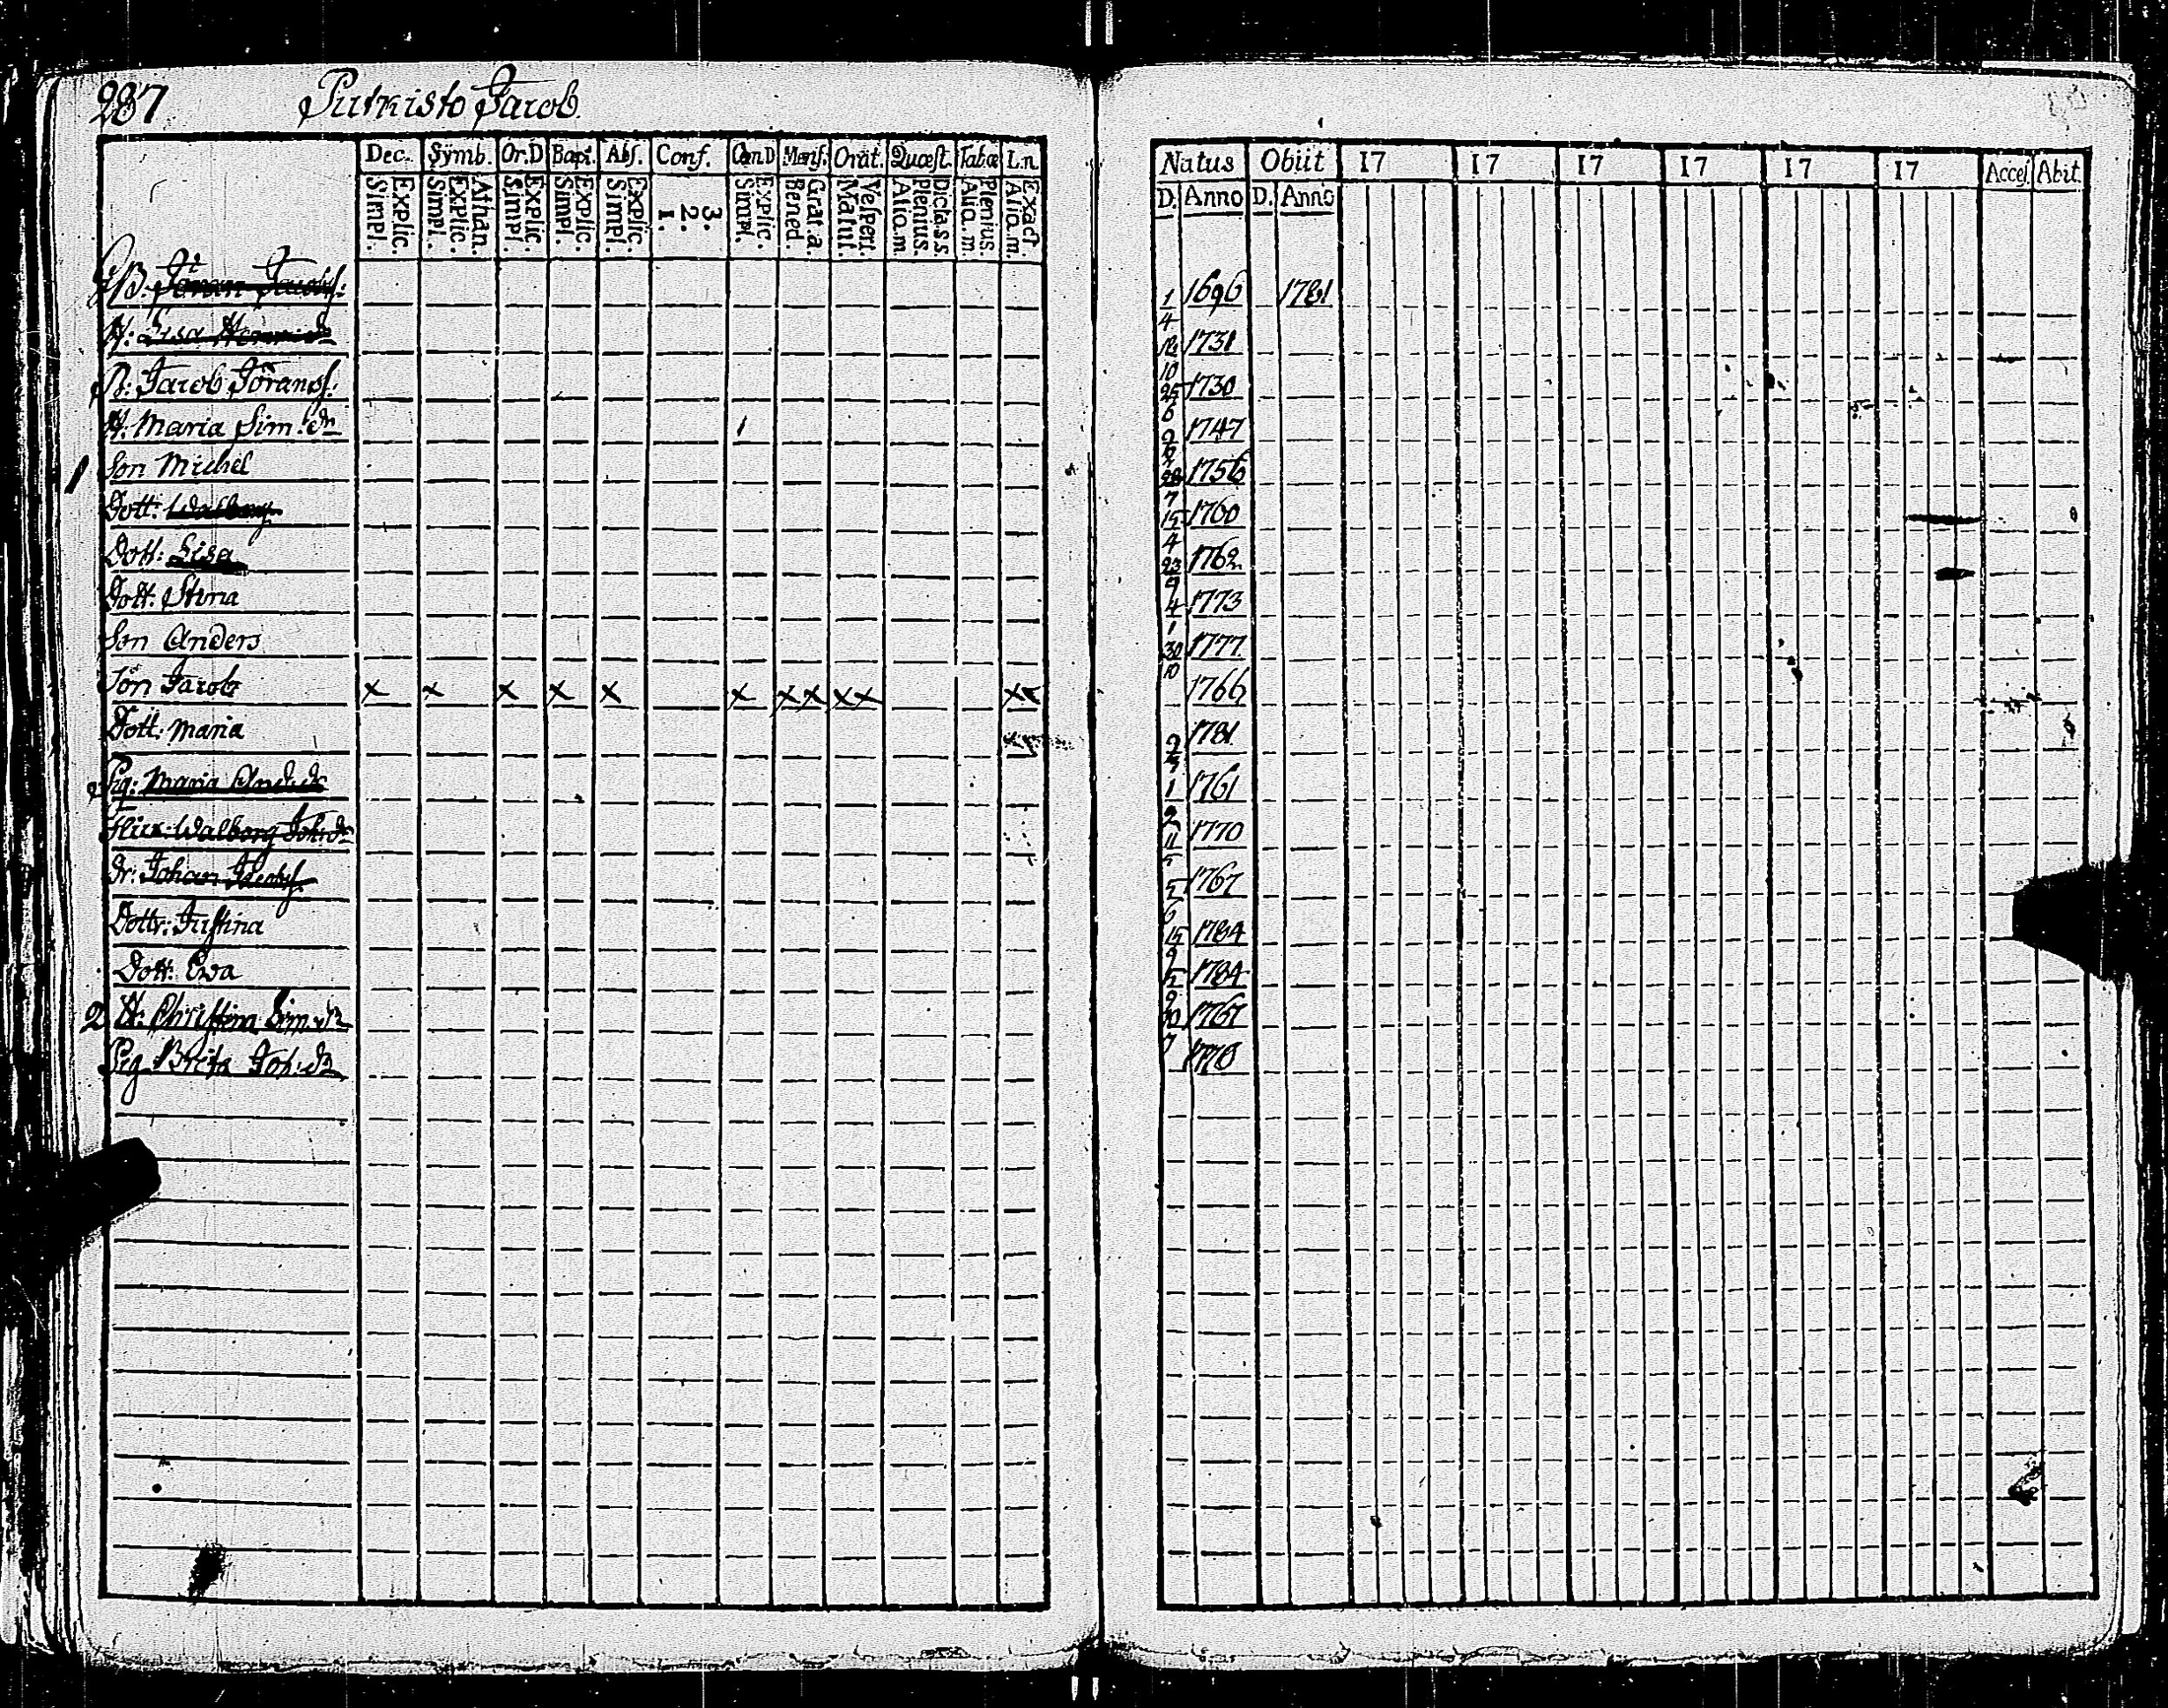 287 Putkisto Jacob.
Dec. Symb. Or.D Bapt. Abs. Conf. Cœn.D Mens. Orat. Quæst. Tab.œ L.n.
Explic. Simpl. Athan. Explic. Simpl. Explic. Simpl. Explic. Simpl. Explic. Simpl. 3. 2. 1. Explic. Simpl. Grat.a. Bened. Vespert. Matut. Dicta.s.s. Plenius. Alia.m Plenius. Alia.m Exact. Alia.m.
Natus Obiit 17 17 17 17 17 17 Accel. Abit.
D. Anno D. Anno
B. Jöran Jacobs: 1 1696 1781
H: Lisa 4 1731
B: Jacob Jörans: 10 25 1730
H: Maria Sim:dr 6 2 1747
1 Son Michel 28 1756
Dott: Walborg 7 15 1760
Dott: Lisa 4 23 1762
Dott: Stina 9 4 1773
Son Anders 1 30 1777
Son Jacob x x x x x x x x x x x 10 1766
Dott: Maria 2 1781
Pig: Maria And:dr 1 1761
Flick: Walborg Joh:dr 2 11 1770
Dr: Johan Jacobs. 5 1767
Dottr: Justina 6 15 1784
Dott: Ewa 9 5 1784
2 H: Christina Sim:dr 9 10 1767
Pig Brita Joh:dr 7 1770